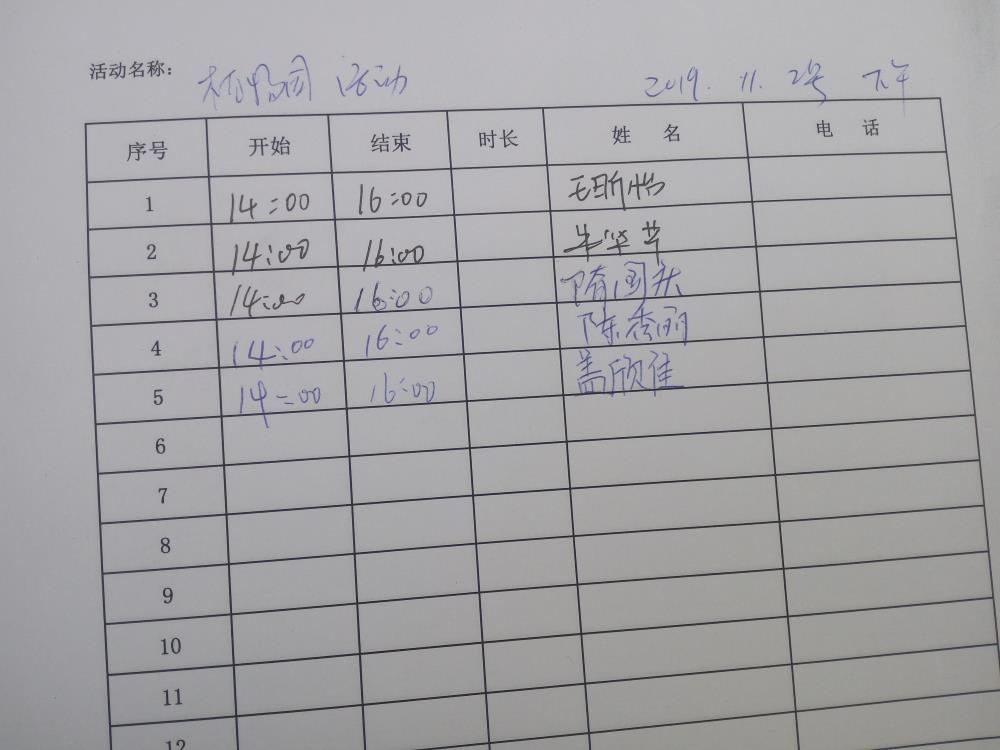 活动名称： 活动 2019.11.2号 下午
序号 开始 结束 时长 姓 名 电 话
1 14:00 16:00 毛昕怡
2 14:00 16:00
3 14:00 16:00 隋国庆
4 14:00 16:00 陈秀丽
5 14:00 16:00 盖欣佳
6
7
8
9
10
11
12